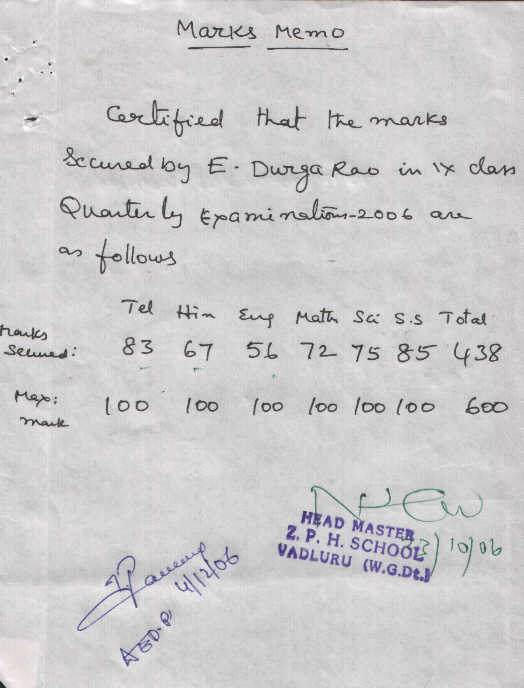 Marks Memo
Certified that the marks
Secured by E. Durga Rao in IX class
Quarterly Examinations-2006 are
as follows
Tel Hin Eng Math Sci S.S Total
Marks Secured: 83 67 56 72 75 85 438
Max: mark 100 100 100 100 100 100 600
HEAD MASTER
Z. P. H. SCHOOL
VADLURU (W.G.Dt.)
23/10/06
4/12/06